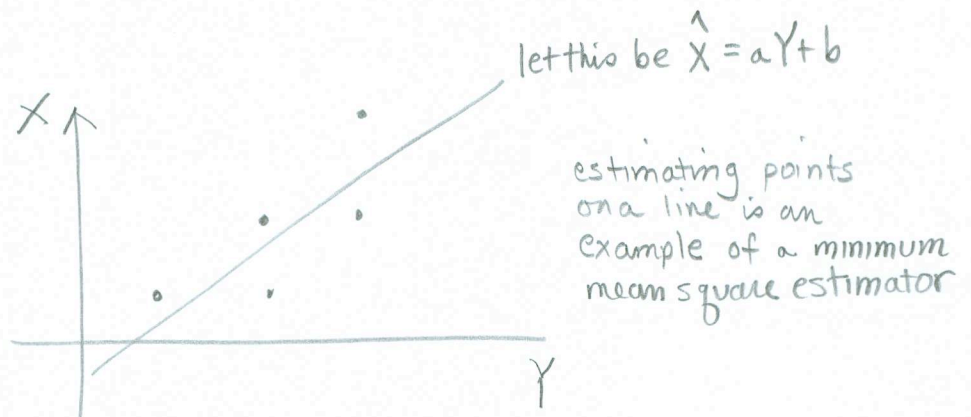 let this be X̂ = aY+b
X
estimating points
on a line is an
example of a minimum
mean square estimator
Y